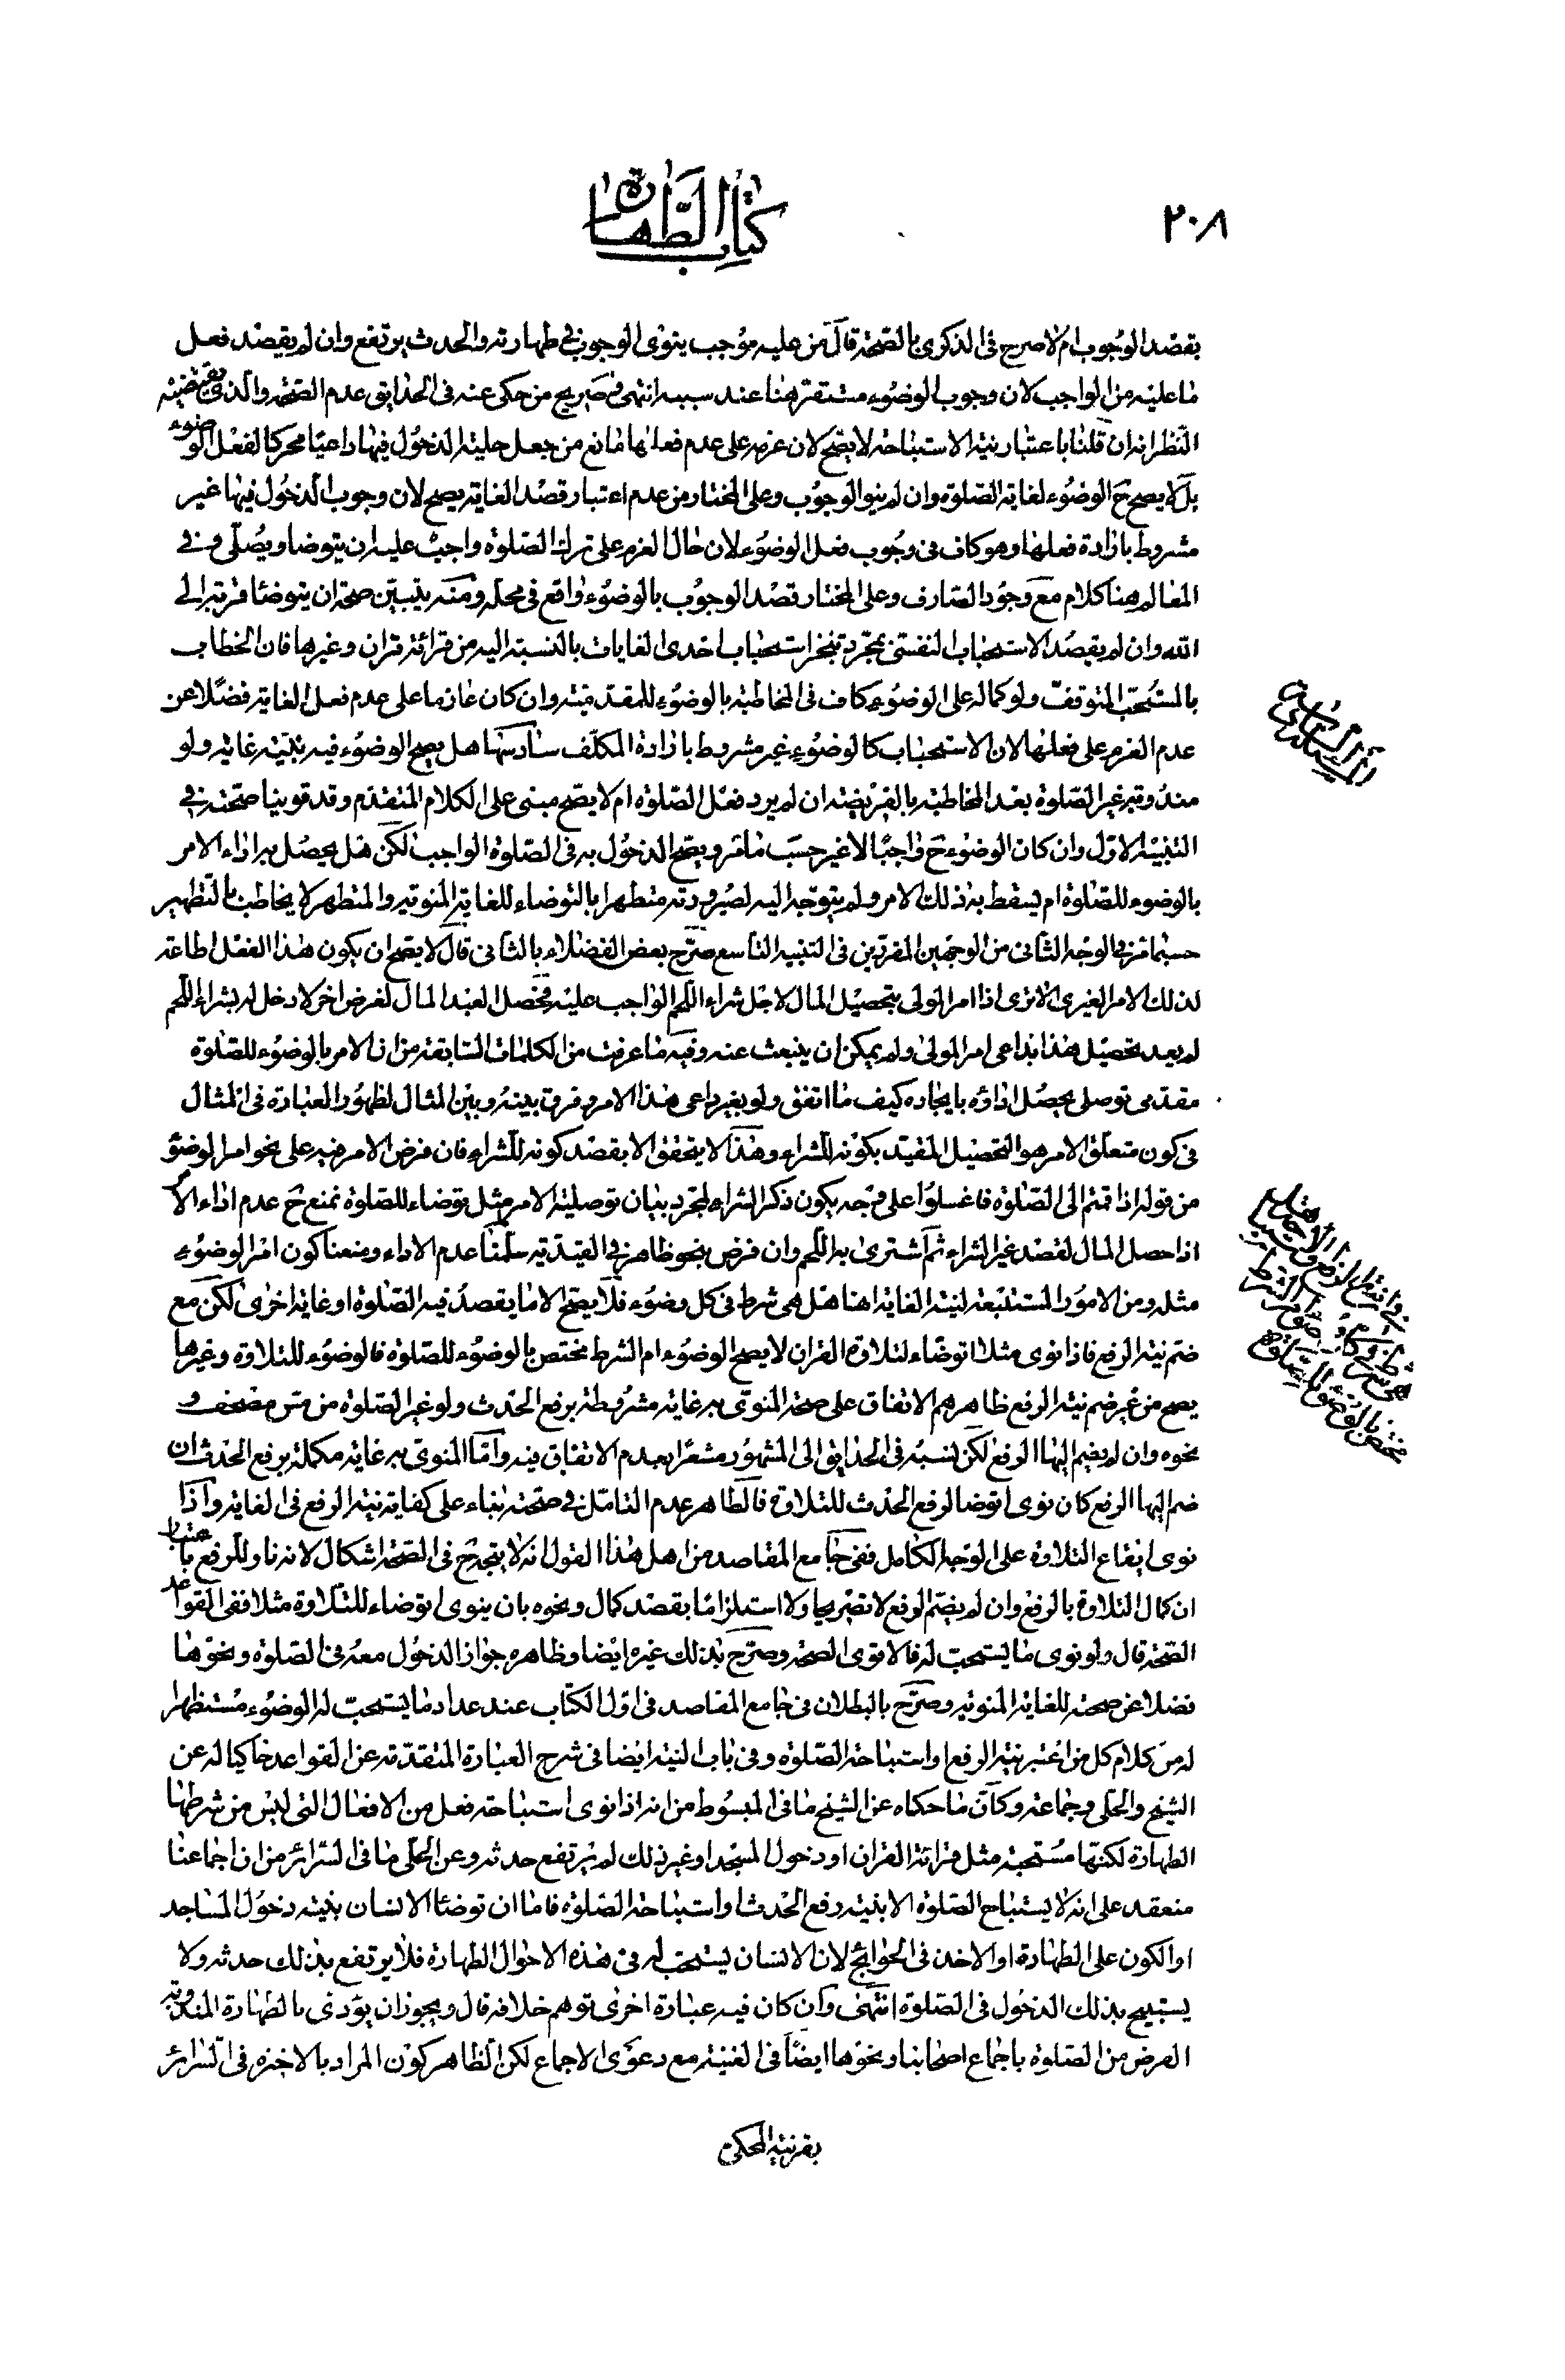 ٢٠٨
كتاب الطهارة
بقصد الوجوب ام لا صرح فى الذكرى بالصحة قال من عليه موجب ينوى الوجوب في طهارته والحدث يرتفع وان لم يقصد فعل
ما عليه من الواجب لان وجوب الوضوء مستقر هنا عند سببه انتهى وصريح من حكى عنه فى الحدايق عدم الصحة والذى يقتضيه
النظر انه ان قلنا باعتبار نية الاستباحة لا يصح لان عزمه على عدم فعلها مانع من جعل حلية الدخول فيها داعيا محركا لفعل الوضوء
بل لا يصح ح الوضوء لغاية الصلوة وان لم ينو الوجوب وعلى المختار من عدم اعتبار قصد الغاية يصح لان وجوب الدخول فيها غير
مشروط بارادة فعلها وهو كاف فى وجوب فعل الوضوء لان حال العزم على ترك الصلوة واجب عليه ان يتوضا ويصلى و في
المعالم هنا كلام مع وجود الصارف وعلى المختار قصد الوجوب بالوضوء واقع فى محله ومنه يتبين صحة ان يتوضئا قربة الى
الله وان لم يقصد الاستحباب النفسى بمجرد تنجز استحباب احدى الغايات بالنسبة اليه من قرائة قران وغيرها فان الخطاب
بالمستحب المتوقف ولو كماله على الوضوء كاف فى المخاطبة بالوضوء للمقدمية وان كان عازما على عدم فعل الغاية فضلا عن
عدم العزم على فعلها لان الاستحباب كالوضوء غير مشروط بارادة المكلف سادسها هل يصح الوضوء فيه بنية غاية ولو
مندوقبة غير الصلوة بعد المخاطبة بالفريضة ان لم يرد فعل الصلوة ام لا يصح مبنى على الكلام المتقدم وقد قوينا صحته في
التنبيه الاول وان كان الوضوء ح واجبا لا غير حسب ما مر ويصح الدخول به فى الصلوة الواجب لكن هل يحصل به اداء الامر
بالوضوء للصلوة ام يسقط به ذلك الامر ولم يتوجه اليه لصيرورته متطهرا بالتوضاء للغاية المنوية والمتطهر لا يخاطب بالتطهير
حسبما مر في الوجه الثانى من الوجهين المقربين فى التنبيه التاسع صرح بعض الفضلاء بالثانى قال لا يصح ان يكون هذا الفعل اطاعة
لذلك الامر الغيرى الا ترى اذا امر المولى بتحصيل المال لاجل شراء اللحم الواجب عليه فحصل العبد المال لغرض اخر لا دخل له بشراء اللحم
لم يعد تحصيل هذا بداعى امر المولى ولم يمكن ان ينبعث عنه وفيه ما عرفت من الكلمات السابقة من ان الامر بالوضوء للصلوة
مقدمى توصلى يحصل اداؤه بايجاده كيف ما اتفق ولو بغير داعى هذا الامر وفرق بينه وبين المثال لظهور العبارة فى المثال
فى كون متعلق الامر هو التحصيل المقيد بكونه للشراء وهذا لا يتحقق الا بقصد كونه للشراء فان فرض الامر فيه على نحو امر الوضوء
من قوله اذا قمتم الى الصلوة فاغسلوا على وجه يكون ذكر الشراء لمجرد بيان توصلية الامر مثل توضاء للصلوة نمنع ح عدم اداء الامر
اذا حصل المال لقصد غير الشراء ثم اشترى به اللحم وان فرض بنحو ظاهر في القيدية سلمنا عدم الاداء ومنعنا كون امر الوضوء
مثله ومن الامور المستتبعة لنية الغاية هنا هل هى شرط فى كل وضوء فلا يصح الا ما يقصد فيه الصلوة او غاية اخرى لكن مع
ضم نية الرفع فاذا نوى مثلا اتوضاء لتلاوة القران لا يصح الوضوء ام الشرط مختص بالوضوء للصلوة فالوضوء للتلاوة وغيرها
يصح من غير ضم نية الرفع ظاهرهم الاتفاق على صحة المنوى به غاية مشروطة برفع الحدث ولو غير الصلوة من مس مصحف و
نحوه وان لم يضم اليها الرفع لكن نسبه فى الحدايق الى المشهور مشعرا بعدم الاتفاق فيه واما المنوى به غاية مكملة برفع الحدث ان
ضم اليها الرفع كان نوى اتوضا لرفع الحدث للتلاوة فالظاهر عدم التامل في صحته بناء على كفاية نية الرفع فى الغاية واذا
نوى ايقاع التلاوة على الوجه الكامل ففى جامع المقاصد من اهل هذا القول انه لا يتجه ح فى الصحة اشكال لانه ناو للرفع باعتبار
ان كمال التلاوة بالرفع وان لم يضم الرفع لا تصريحا ولا استلزاما بقصد كمال ونحوه بان ينوى اتوضاء للتلاوة مثلا ففى القواعد
الصحة قال ولو نوى ما يستحب له فالاقوى الصحة وصرح بذلك غيره ايضا وظاهره جواز الدخول معه فى الصلوة ونحوها
فضلا عن صحته للغاية المنوية وصرح بالبطلان فى جامع المقاصد فى اول الكتاب عند عداد ما يستحب له الوضوء مستظهرا
له من كلام كل من اعتبر نية الرفع او استباحة الصلوة وفى باب النية ايضا فى شرح العبارة المتقدمة عن القواعد حاكيا له عن
الشيخ والحلى وجماعة وكان ما حكاه عن الشيخ ما فى المبسوط من انه اذا نوى استباحة فعل من الافعال التى ليس من شرطها
الطهارة لكنها مستحبة مثل قرائة القران او دخول المسجد او غير ذلك لم يرتفع حدثه وعن الحلى ما فى السرائر من ان اجماعنا
منعقد على انه لا يستباح الصلوة الا بنية رفع الحدث او استباحة الصلوة فاما ان توضئا الانسان بنية دخول المساجد
او الكون على الطهارة او الاخذ فى الحوايج لان الانسان يستحب له فى هذه الاحوال الطهارة فلا يرتفع بذلك حدثه ولا
يستبيح بذلك الدخول فى الصلوة انتهى وان كان فيه عبارة اخرى توهم خلافه قال ويجوز ان يؤدى بالطهارة المندوبة
الفرض من الصلوة باجماع اصحابنا ونحوها ايضا فى الغنية مع دعوى الاجماع لكن الظاهر كون المراد بالاخيره فى السرائر
بقرينة المحكى